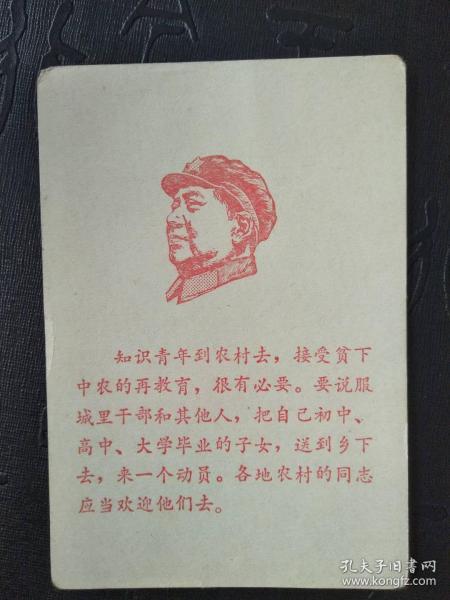 知识青年到农村去，接受贫下
中农的再教育，很有必要。要说服
城里干部和其他人，把自己初中、
高中、大学毕业的子女，送到乡下
去，来一个动员。各地农村的同志
应当欢迎他们去。
孔夫子旧书网
www.kongfz.com